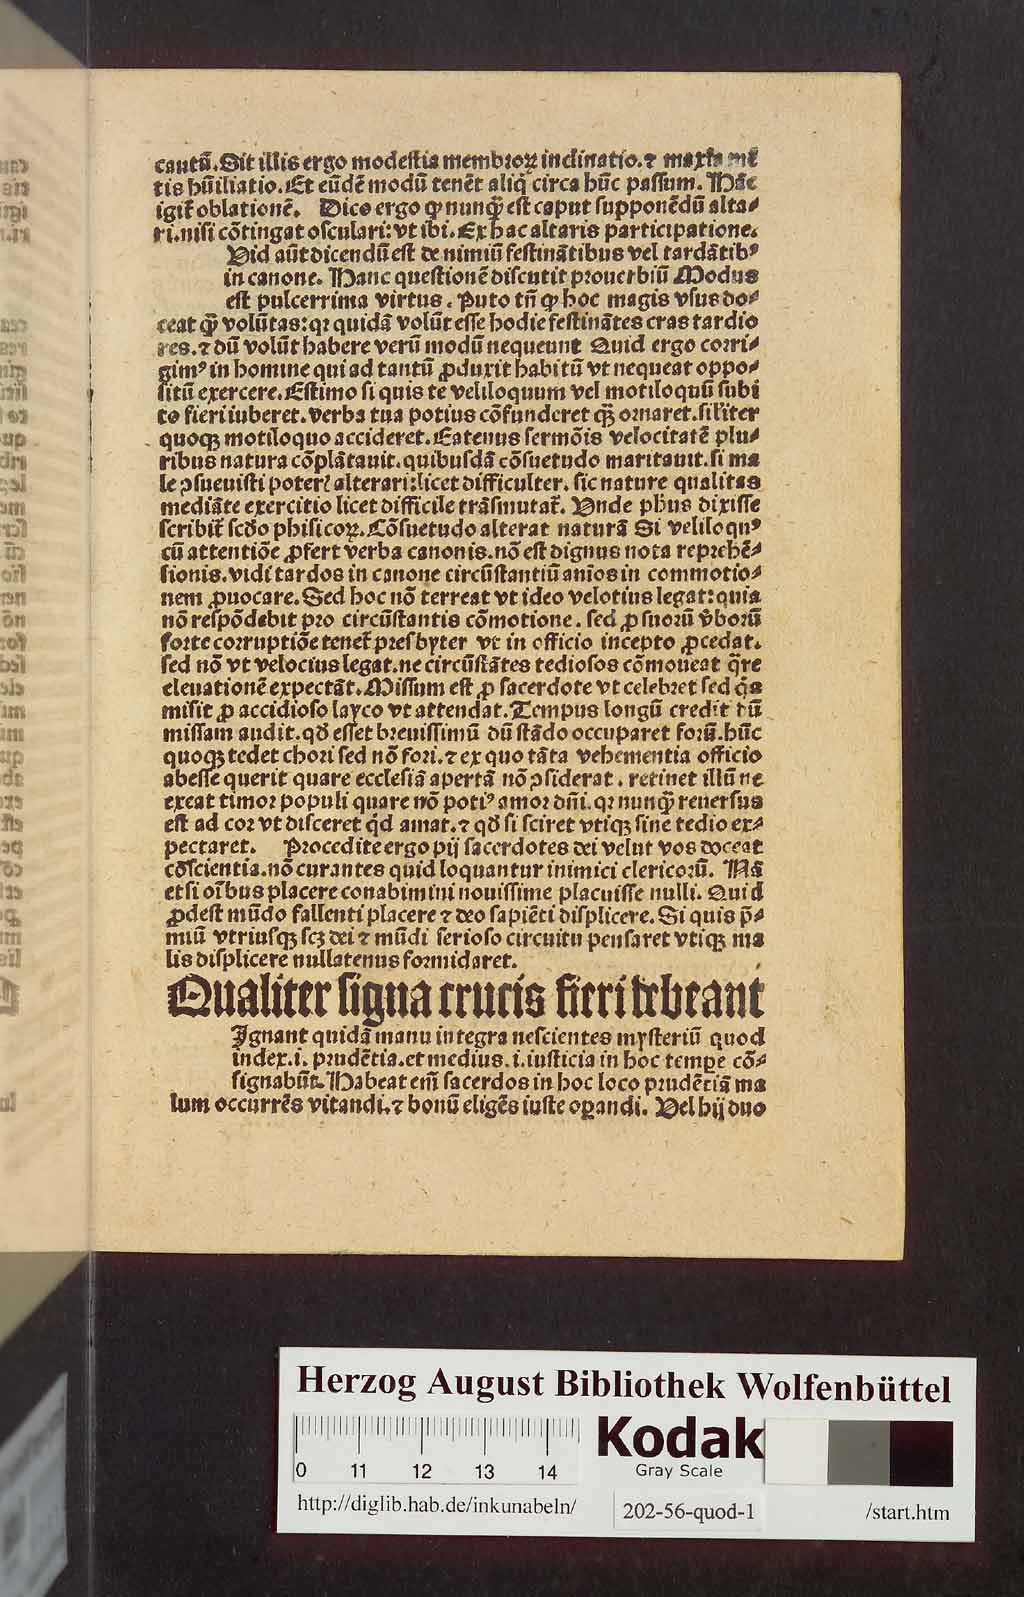 cautū. Sit illis ergo modestia membroꝝ inclinatio. ⁊ maxīa mē
tis hūiliatio. Et eūdē modū tenēt aliq̄ circa hūc passum. Hāc
igit̄ oblationē. Dico ergo ꝙ nunq̄ȝ est caput supponēdū alta⸗
ri. nisi cōtingat osculari: vt ibi. Ex hac altaris participatione.
Vid aūt dicendū est de nimiū festinātibus vel tardātibꝰ
in canone. Hanc questionē discutit prouerbiū Modus
est pulcerrima virtus. Puto tñ ꝙ hoc magis vsus do⸗
ceat q̄ȝ volūtas: qꝛ quidā volūt esse hodie festinātes cras tardio
res. ⁊ dū volūt habere verū modū nequeunt Quid ergo corri⸗
gimꝰ in homine qui ad tantū ꝓduxit habitū vt nequeat oppo⸗
sitū exercere. Estimo si quis te veliloquum vel motiloquū subi
to fieri iuberet. verba tua potius cōfunderet q̄ȝ ornaret. sil'iter
quoqꝫ motiloquo accideret. Eatenus sermōis velocitatē plu⸗
ribus natura cōplātauit. quibusdā cōsuetudo maritauit. si ma
le ꝯsueuisti poter̄ alterari: licet difficulter. sic nature qualitas
mediāte exercitio licet difficile trāsmutat̄. Vnde ph̄us dixisse
scribit̄ scḏo phisicoꝝ. Cōsuetudo alterat naturā Si veliloquꝰ
cū attentiōe ꝓfert verba canonis. nō est dignus nota reprehē⸗
sionis. vidi tardos in canone circūstantiū animos in commotio⸗
nem ꝓuocare. Sed hoc nō terreat vt ideo velotius legat: quia
nō respōdebit pro circūstantis cōmotione. sed ꝓ suorū v̄borū
forte corruptiōe tenet̄ presbyter vt in officio incepto ꝓcedat.
sed nō vt velocius legat. ne circūstātes tediosos cōmoueat q̄re
eleuationē expectāt. Missum est ꝓ sacerdote vt celebret sed q̄s
misit ꝓ accidioso layco vt attendat. Tempus longū credit dū
missam audit. qḏ esset breuissimū dū stādo occuparet forū. hūc
quoqꝫ tedet chori sed nō fori. ⁊ ex quo tāta vehementia officio
abesse querit quare ecclesiā apertā nō ꝯsiderat. retinet illū ne
exeat timor populi quare nō potiꝰ amor dñi. qꝛ nunq̄ȝ reuersus
est ad cor vt disceret q̄d amat. ⁊ qḏ si sciret vtiqꝫ sine tedio ex⸗
pectaret. Procedite ergo pij sacerdotes dei velut vos doceat
cōscientia. nō curantes quid loquantur inimici clericorū. Nā
etsi oībus placere conabimini nouissime placuisse nulli. Quid
ꝓdest mūdo fallenti placere ⁊ deo sapiēti displicere. Si quis p̄⸗
miū vtriusqꝫ scꝫ dei ⁊ mūdi serioso circuitu pensaret vtiqꝫ ma
lis displicere nullatenus formidaret.
Qualiter signa crucis fieri debeant
Ignant quidā manu integra nescientes mysteriū quod
index. i. prudētia. et medius. i. iusticia in hoc tempe cō⸗
signabūt. Habeat em̄ sacerdos in hoc loco prudētiā ma
lum occurrēs vitandi. ⁊ bonū eligēs iuste oꝑandi. Vel hij duo
Herzog August Bibliothek Wolfenbüttel
Kodak
Gray Scale
0 11 12 13 14
http://diglib.hab.de/inkunabeln/ 202-56-quod-1 /start.htm